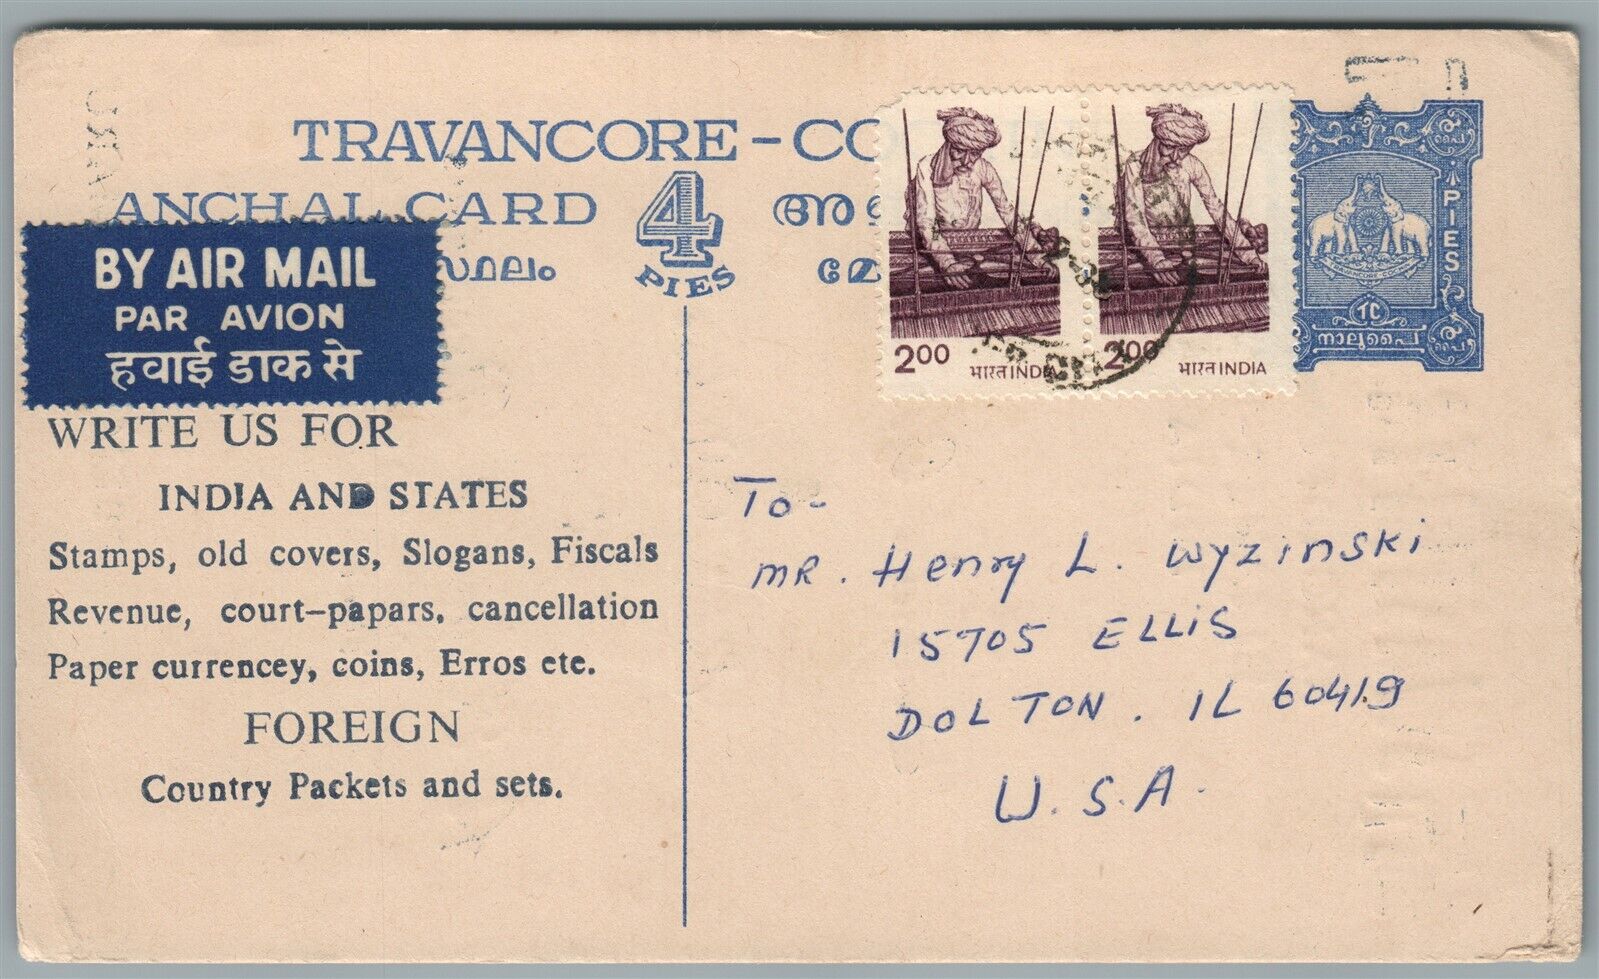 TRAVANCORE-
ANCHAL CARD
4
PIES
BY AIR MAIL
PAR AVION
हवाई डाक से
WRITE US FOR
INDIA AND STATES
Stamps, old covers, Slogans, Fiscals
Revenue, court-papars, cancellation
Paper currencey, coins, Erros ete.
FOREIGN
Country Packets and sets.
2.00 भारत INDIA
2.00 भारत INDIA
PIES
1C
നാലുപൈ
To-
MR. Henry L. Wyzinski
15705 ELLIS
DOLTON. IL 60419
U.S.A.